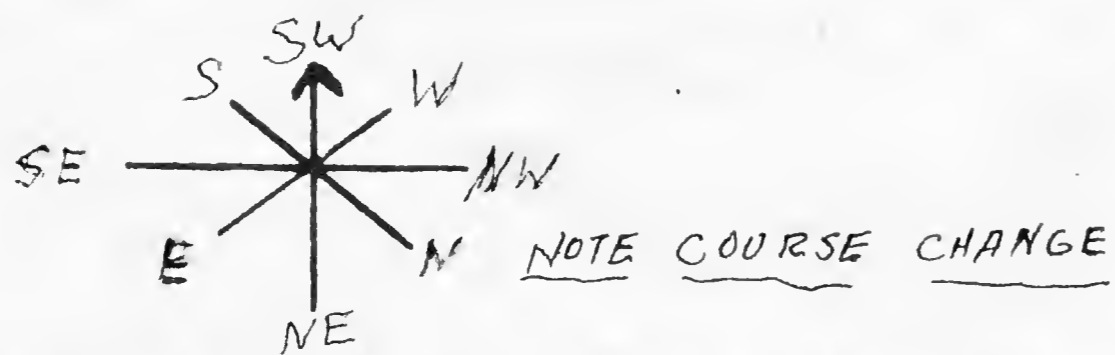 SW
S W
SE NW
E N NOTE COURSE CHANGE
NE